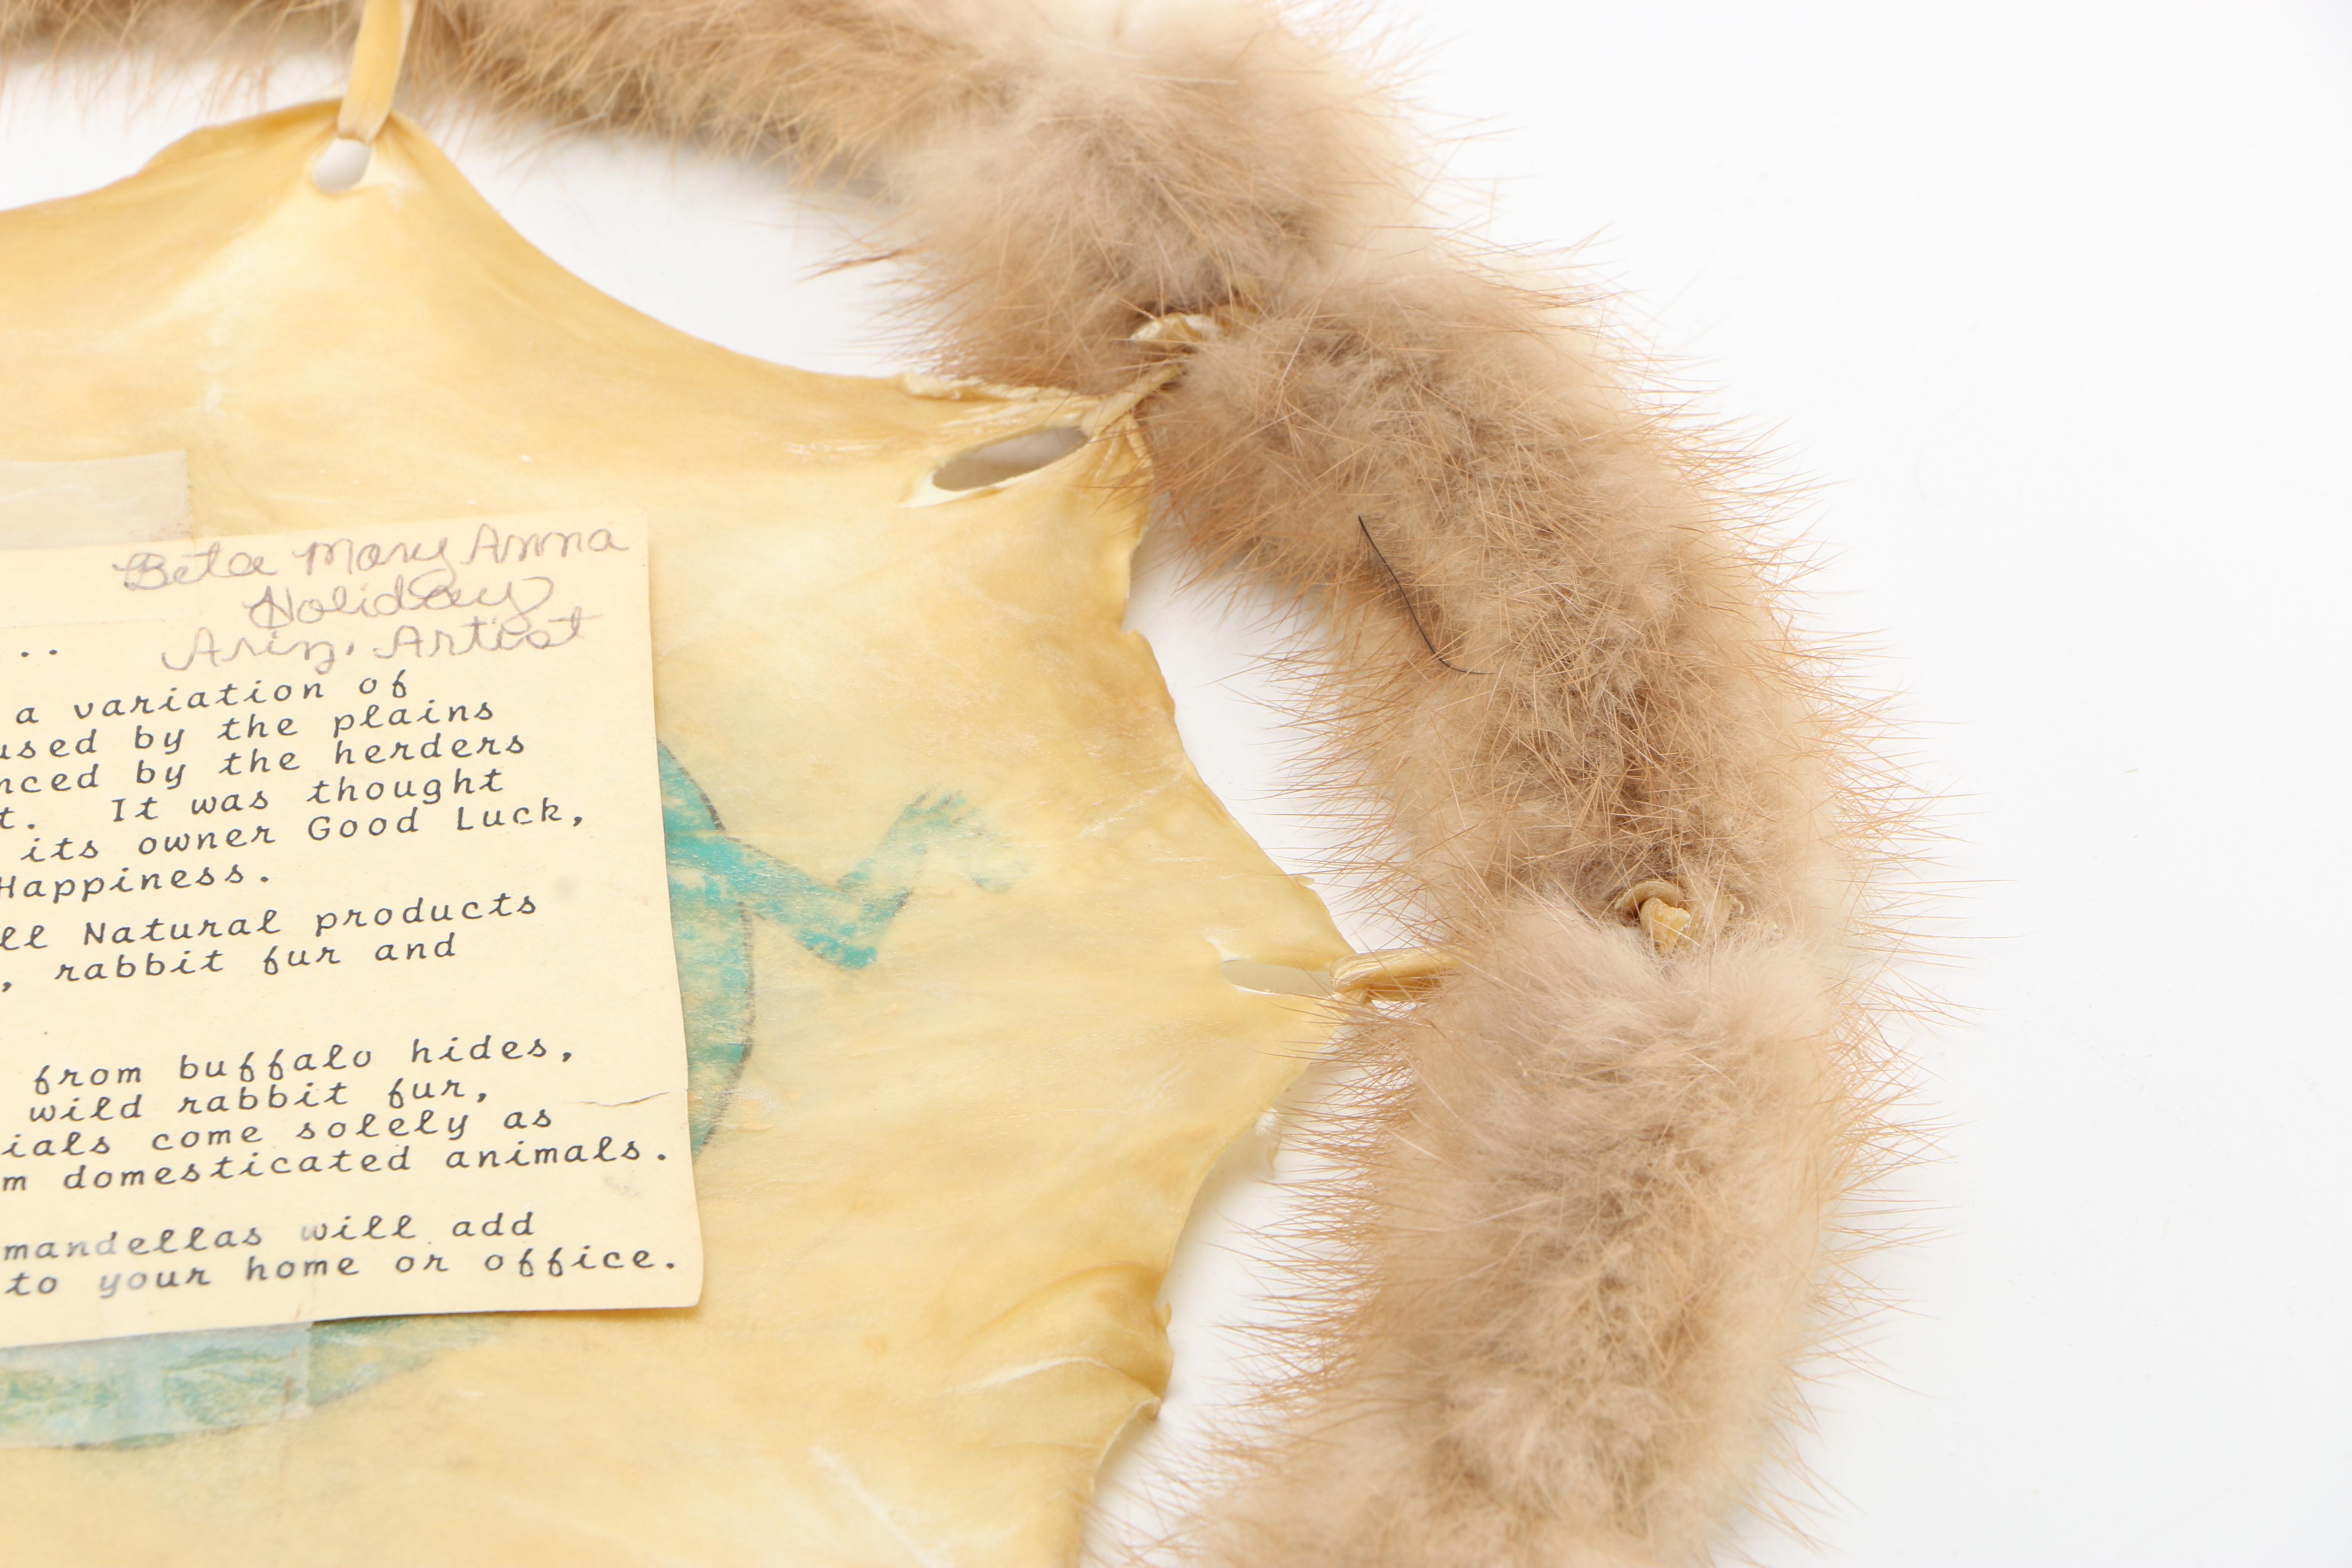 Beta Mary Anna
Holiday
Ariz. Artist
..
a variation of
used by the plains
nced by the herders
t. It was thought
its owner Good Luck,
Happiness.
ll Natural products
, rabbit fur and
from buffalo hides,
wild rabbit fur,
ials come solely as
m domesticated animals.
mandellas will add
to your home or office.